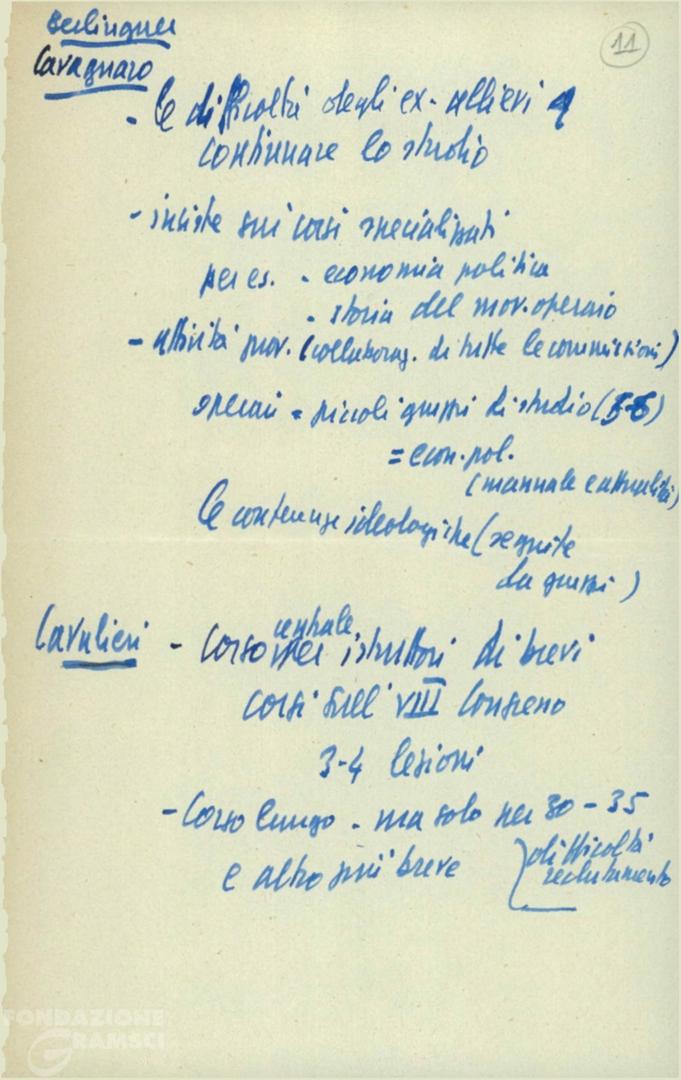 11
Berlinguer
Cavagnaro
- le difficoltà degli ex-allievi a
continuare lo studio
- insiste sui corsi specializzati
per es. - economia politica
- storia del mov. operaio
- attività prov. (collaboraz. di tutte le commissioni)
operai = piccoli gruppi di studio (5-6)
= econ. pol.
(manuale e attualità)
le conferenze ideologiche (seguite
da gruppi)
Cavalieri - Corso centrale per istruttori di brevi
corsi sull'VIII Congresso
3-4 lezioni
- Corso lungo - ma solo per 30-35
e altro più breve } difficoltà
reclutamento
FONDAZIONE
GRAMSCI